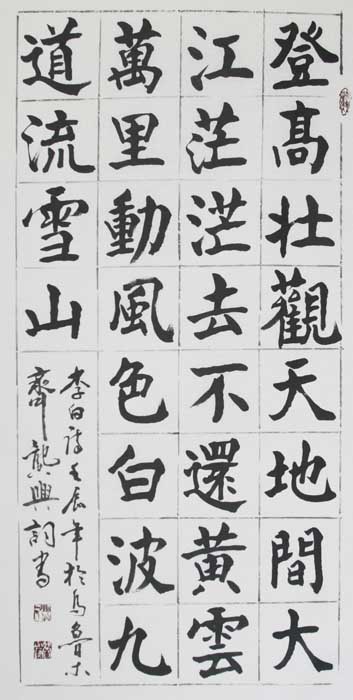 登高壯觀天地間大
江茫茫去不還黃雲
萬里動風色白波九
道流雪山
李白詩壬辰年於烏魯木
齊興詞書